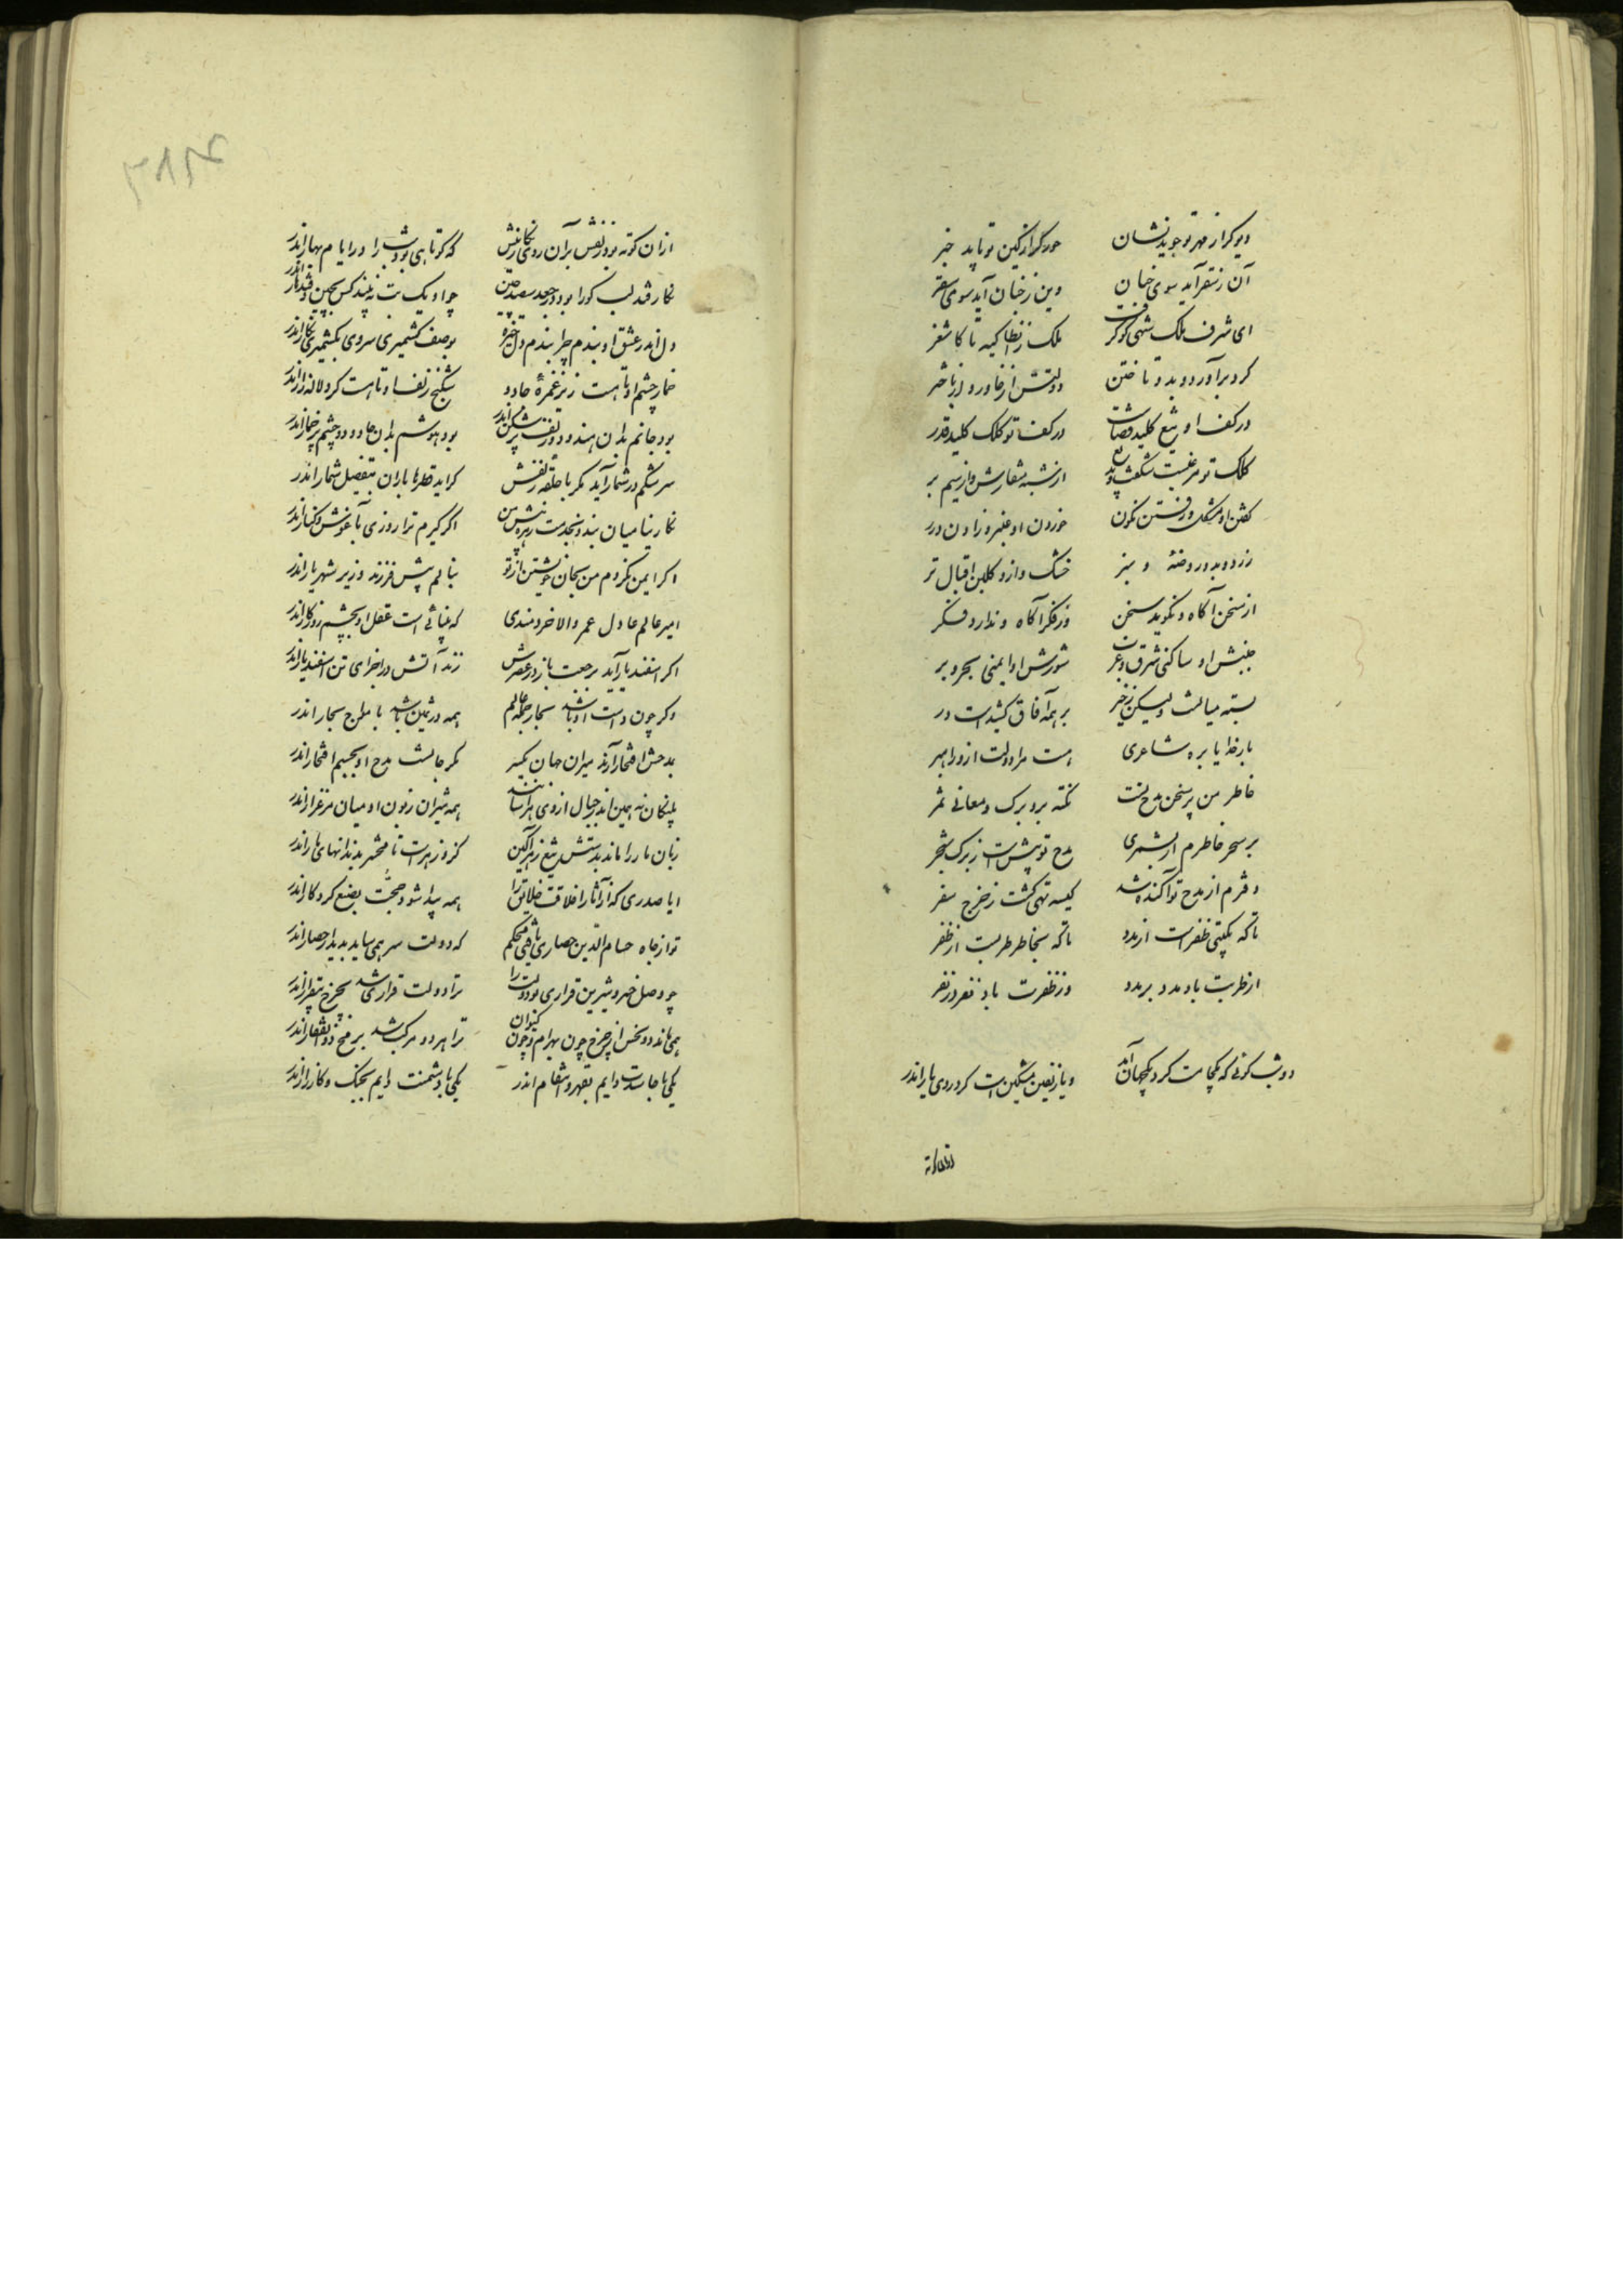 دیو کر از مهر تو جوید نشان حور کر از کین تو یابد خبر
آن ز سقر آید سوی جنان وین ز جنان آید سوی سقر
ای شرف ملک شهی کو کرفت ملک ز انطاکیه تا کاشغر
کرد برآورد و بدو تاختن دولتش از خاور و از باختر
در کف او تیغ کلید قضاست در کف تو کلک کلید قدر
کلک تو مرغیست شکفت
از شبه منقارش و از سیم بر
کشتن او مشکل و رفتن نکون خوردن او عنبر و زادن درر
زرد و بدو روضهٔ و سبز خشک و ازو کلبن اقبال تر
از سخن آکاه و نکوید سخن وز فکر آکاه و ندارد فکر
جنبش او ساکنی شرق و غرب شورش او ایمنی بحر و بر
بسته میانست ولیکن ز خیر بر همه آفاق کشیدست در
بار خدایا بره شاعری هست مرا دولت از و راهبر
خاطر من پر سخن مدح تست نکته برو برک و معانی ثمر
بر سحر خاطرم ار بشمری مدح تو بیش است ز برک شجر
دفترم از مدح تو آکنده شد کیسه تهی کشت ز خرج سفر
تا که بکیتی ظفرست از مدد تا که بخاطر طربست از ظفر
از طربت باد مدد بر مدد وز ظفرت باد نفر در نفر
دو شب کوئی که یکجا هست کرد یکجهان اندر و یا زلفین مشکین است کرد روی یار اندر
از ان کوته بود زلفش بر آن روی نکارینش که کوتاهی بود شب را در ایام بهار اندر
نکار قند لب کو را بود جعد سعد چین چو او یک بت نه بیند کس بچین و قندهار اندر
دل اندر عشق او بندم چرا بندم دل خیره بوصف کشمیری سروی بکشمیری نکار اندر
خمار چشم او تا هست زیر غمزهٔ جادو شکنج زلف او تا هست کرد لاله زار اندر
بود جانم بدان هندو دو زلف پر شکن اندر بود هوشم بدان جادو دو چشم پر خمار اندر
سرشکم در شمار آید مکر با حلقه زلفش کر آید قطرهای باران بتفصیل شمار اندر
نکارینا میان بندد بخدمت زهره پیش من اکر کیرم ترا روزی بآغوش و کنار اندر
اکر ایمن نکردم من بجان خویشتن از تو بنالم پیش فرزند وزیر شهریار اندر
امیر عالم عادل عمر والا خردمندی که بینائی است عقل او بچشم روزکار اندر
اکر اسفندیار آید برجعت باز در عصرش زند آتش در اجزای تن اسفندیار اندر
وکر چون دست او باشد بحار جمله عالم همه در ثمین باشد بامواج بحار اندر
بمدحش افتخار آرند میران جهان یکسر مکر جانست مدح او بجسم افتخار اندر
پلنکان نه همین اندر جبال از وی هراسانند همه شیران زبون او میان مرغزار اندر
زبان مار را ماند بدستش تیغ زهرآکین کزو زهرست تا محشر بدندانهای مار اندر
ایا صدری که از آثار اخلاقت خلایق را همه پیدا شود حجت بصنع کردکار اندر
تو از جاه حسام الدین حصاری یافتی محکم که دولت سر همی ساید بدیدار حصار اندر
چو وصل خسرو شیرین قراری بود دولت را ترا دولت قراری شد بچرخ بیقرار اندر
همی ماند دو نحس از چرخ چون بهرام و چون کیوان ترا هر دو مرکب شد برمح ذوالفقار اندر
یکی با حاسدت دایم بقهر و انتقام اندر یکی با دشمنت دایم بجنک و کارزار اندر